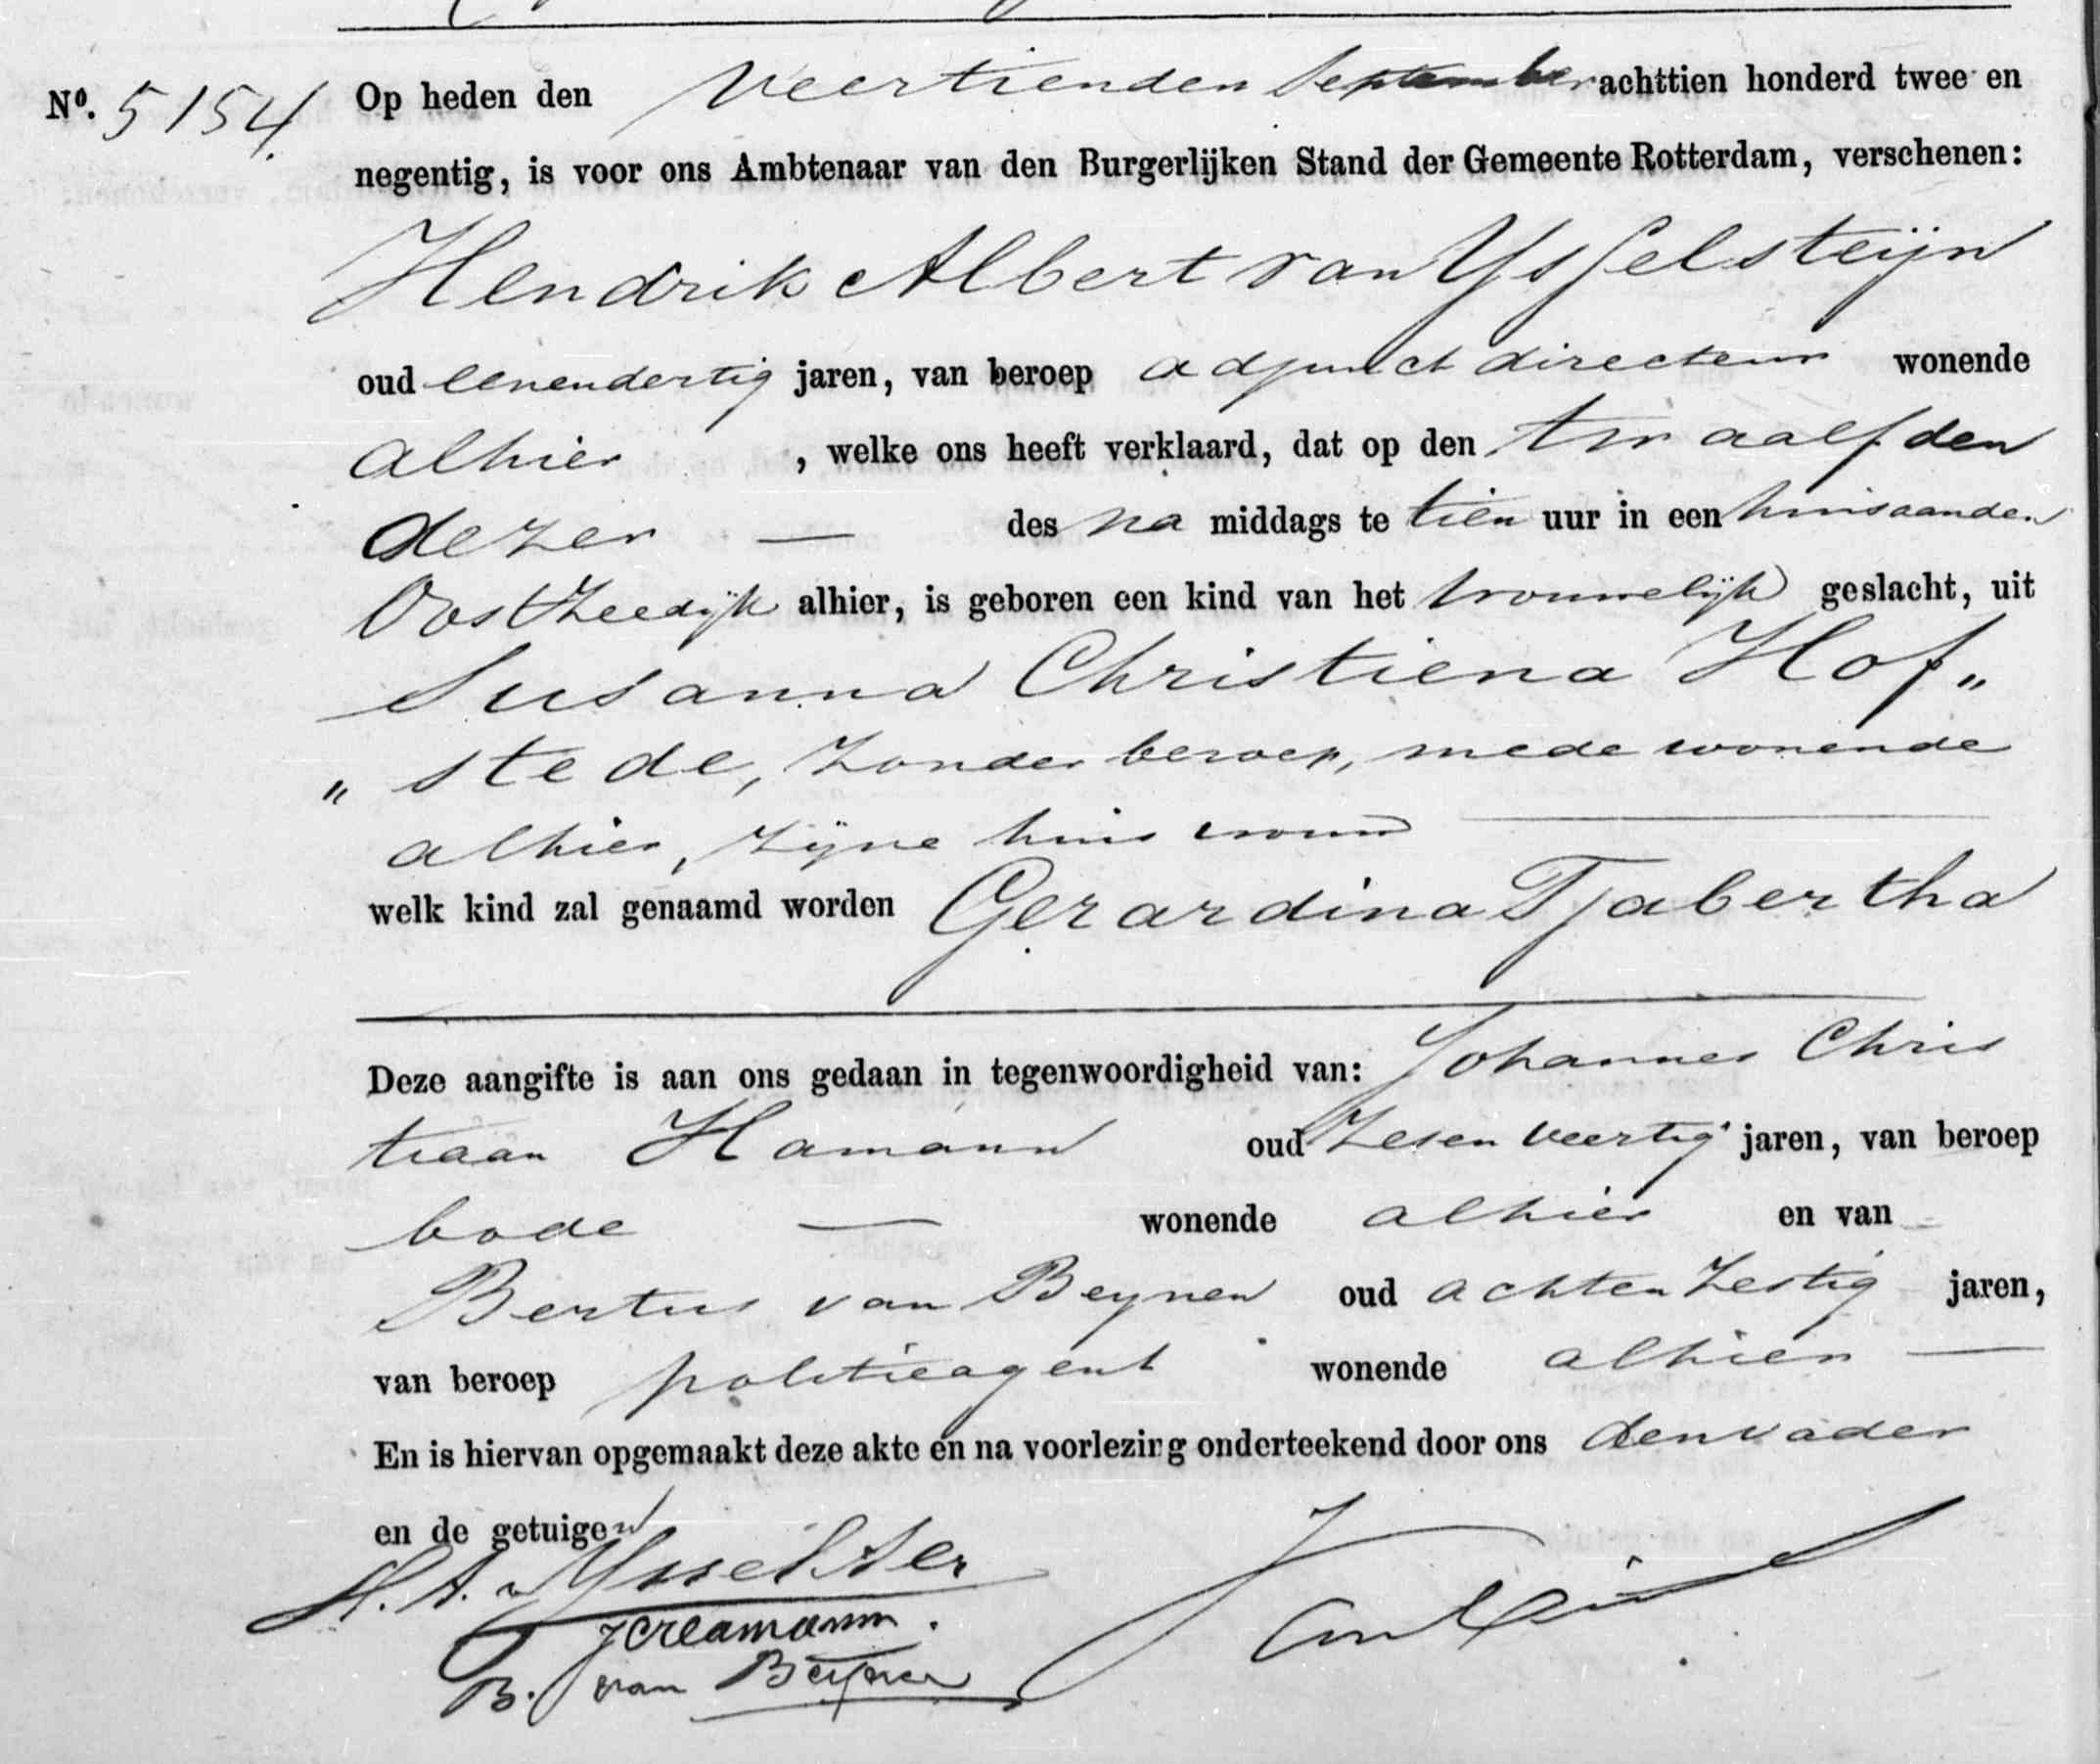 Nº. 5154. Op heden den Veertienden September achttien honderd twee en
negentig, is voor ons Ambtenaar van den Burgerlijken Stand der Gemeente Rotterdam, verschenen:
Hendrik Albert van Ysselsteijn
oud eenendertig jaren, van beroep adjunct directeur wonende
alhier , welke ons heeft verklaard, dat op den twaalfden
dezer — des na middags te tien uur in een huis aan den
Oostzeedijk alhier, is geboren een kind van het vrouwelijk geslacht, uit
Susanna Christiena Hof„
„ stede, zonder beroep, mede wonende
alhier, zijne huisvrouw
welk kind zal genaamd worden Gerardina Tjabertha
Deze aangifte is aan ons gedaan in tegenwoordigheid van: Johannes Chris
tiaan Hamann oud zesenveertig jaren, van beroep
bode — wonende alhier en van
Bertus van Beynen oud achtenzestig jaren,
van beroep politieagent wonende alhier —
En is hiervan opgemaakt deze akte en na voorlezing onderteekend door ons den vader
en de getuigen
H. A. v. Ysselster
JCHamann.
B. van Beynen